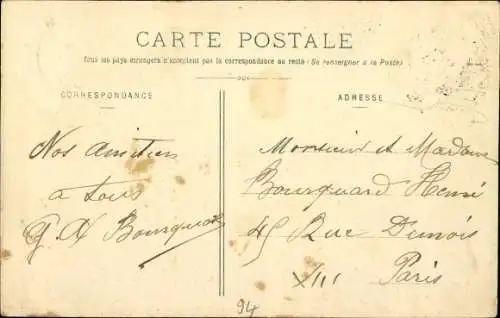 CARTE POSTALE
Tous les pays étrangers n'acceptent pas la correspondance au recto (Se renseigner à la Poste)
CORRESPONDANCE
ADRESSE
Nos amitiés
a tous
Monsieur et Madame
Bourquard Henri
45 Rue Dunois
XIII
Paris
94